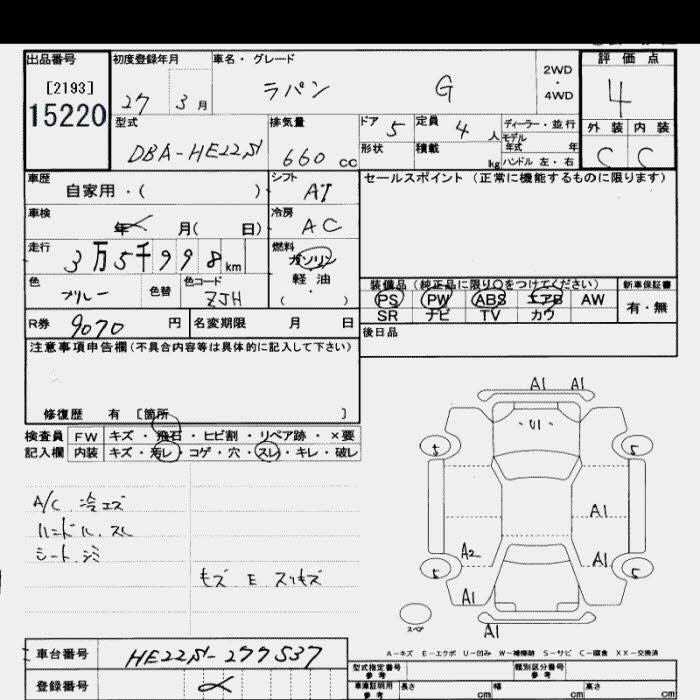 出品番号
[2193]
15220
初度登録年月
27 3月
車名・グレード
ラパン G
2WD
・
4WD
評価点
4
型式
DBA-HE22S
排気量
660 cc
ドア 5
定員 4 人
形状
積載 kg
ディーラー・並行
モデル
年式 年
ハンドル 左・右
外装 内装
C C
車歴
自家用・( )
シフト
AT
セールスポイント (正常に機能するものに限ります)
車検
年 月( 日)
冷房
AC
走行
3万5千998km
燃料
ガソリン
軽油
( ・ )
色
ブルー
色替
色コード
ZJH
装備品 (純正品に限り○をつけてください)
PS PW ABS エアB AW
SR ナビ TV カワ
新車保証書
有・無
R券 9070 円
名変期限 月 日
後日品
注意事項申告欄(不具合内容等は具体的に記入して下さい)
修復歴 有 [箇所 ]
検査員 FW キズ・飛石・ヒビ割・リペア跡・×要
記入欄 内装 キズ・汚レ・コゲ・穴・スレ・キレ・破レ
A/C 冷エズ
ハンドル スレ
シート シミ
モズ E スリキズ
A1 A1
U1
5 5
A1
A2
A1
5 5
A1
A1
スペア
A-キズ E-エクボ U-凹み W-補修跡 S-サビ C-腐食 XX-交換済
車台番号 HE22S-277537
登録番号
型式指定番号
参考
類別区分番号
参考
車庫証明用
参考
長さ cm 幅 cm 高さ cm